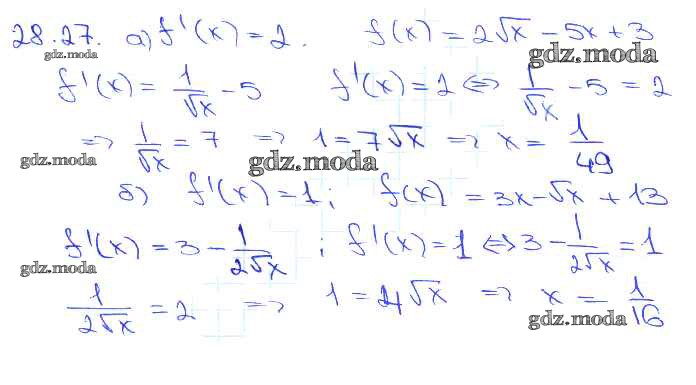 28.27. а) f'(x) = 2. f(x) = 2√x − 5x + 3
gdz.moda gdz.moda
f'(x) = 1/√x − 5 f'(x) = 2 <=> 1/√x − 5 = 2
=> 1/√x = 7 => 1 = 7√x => x = 1/49
gdz.moda gdz.moda
б) f'(x) = 1; f(x) = 3x − √x + 13
f'(x) = 3 − 1/2√x ; f'(x) = 1 <=> 3 − 1/2√x = 1
gdz.moda
1/2√x = 2 => 1 = 4√x => x = 1/16
gdz.moda